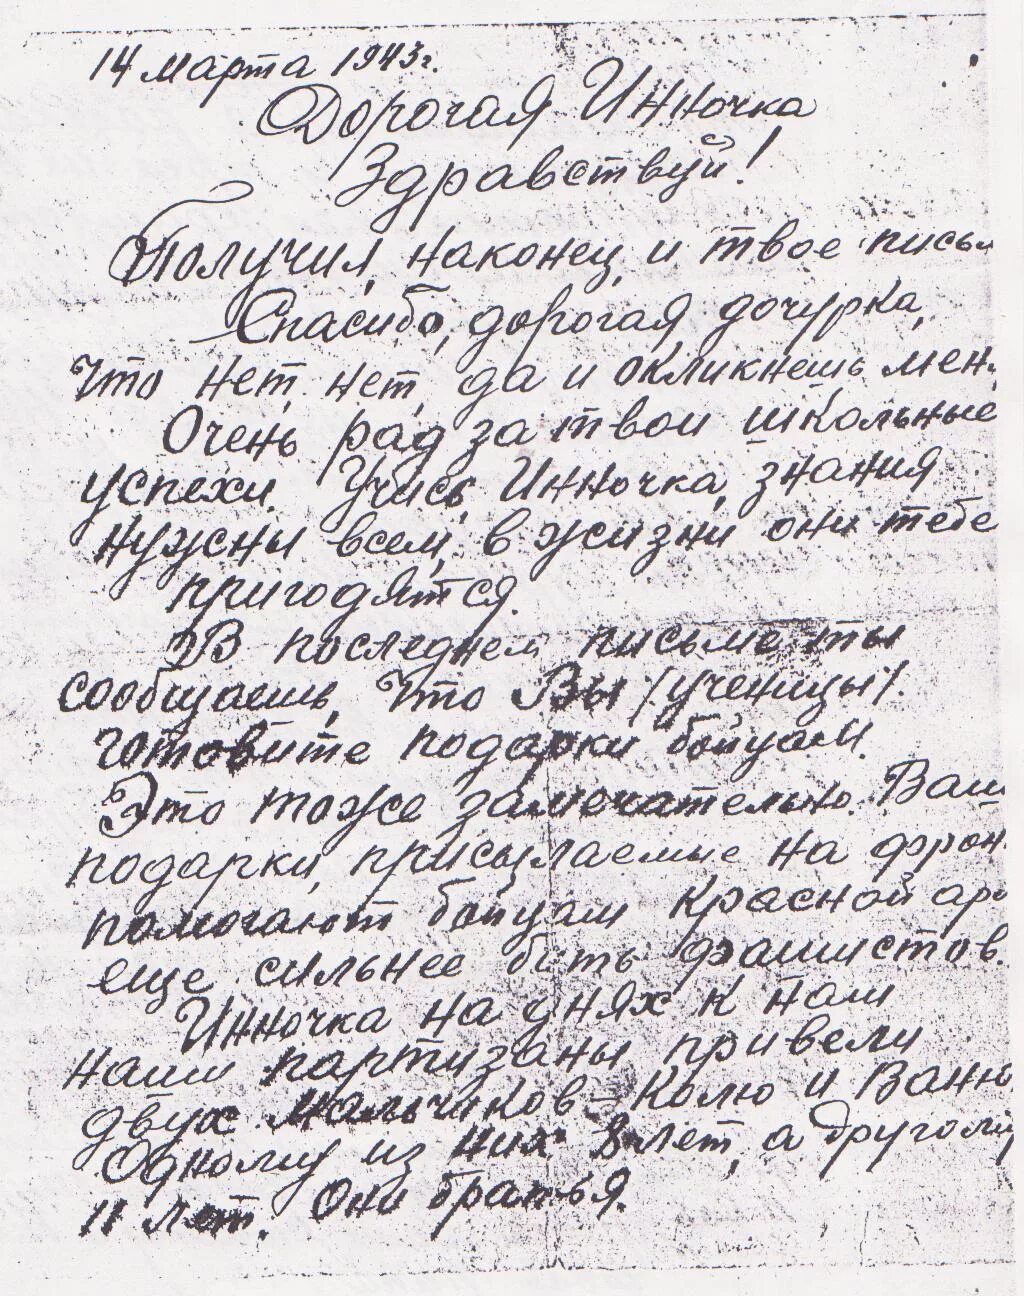 14 марта 1943г.
Дорогая Инночка
Здравствуй!
Получил, наконец, и твое письм
Спасибо, дорогая дочурка,
что нет, нет, да и окликнешь мен
Очень рад за твои школьные
успехи. Учись, Инночка, знания
нужны всем, в жизни они тебе
пригодятся.
В последнем письме ты
сообщаешь, что Вы /ученицы/.
готовите подарки бойцам.
Это тоже замечательно. Ваш
подарки, присылаемые на фрон
помогают бойцам Красной ар
еще сильнее бить фашистов.
Инночка на днях к нам
наши партизаны привели
двух мальчиков - Колю и Ваню
Одному из них 8 лет, а другому
11 лет. Они братья.